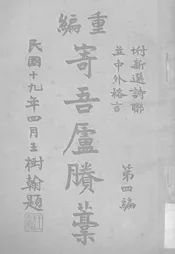 重編
附新選詩聯
並中外格言
寄吾廬賸藁
第四編
民國十九年四月王樹翰題